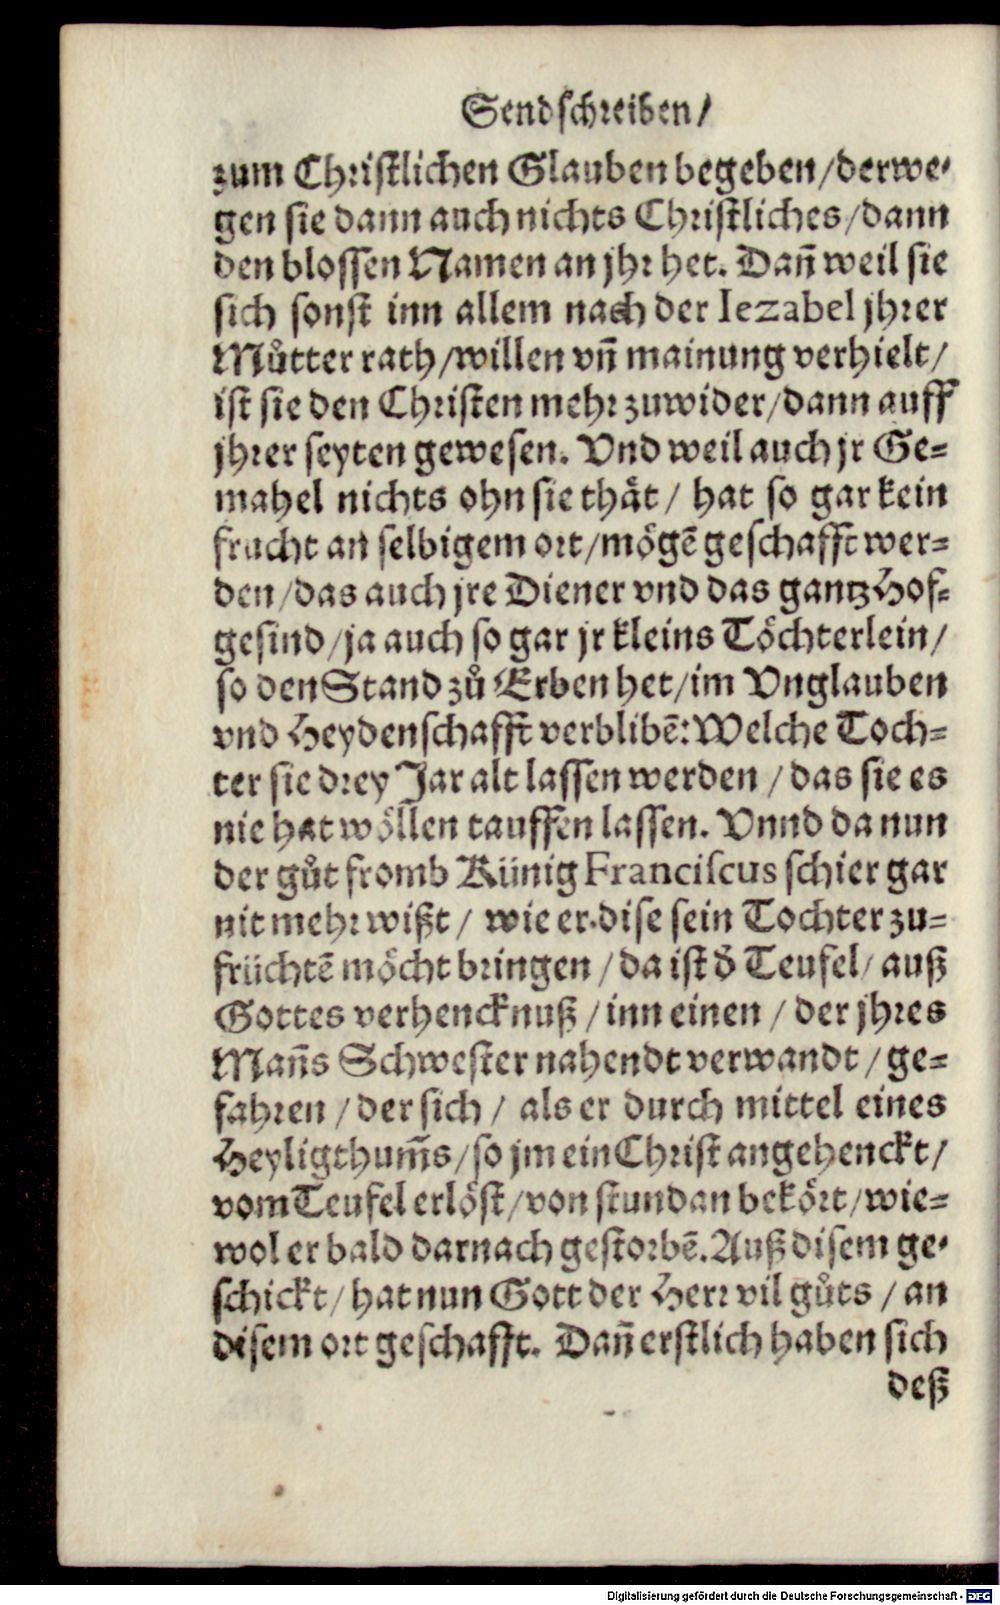 Sendschreiben/
zum Christlichen Glauben begeben/derwe-
gen sie dann auch nichts Christliches/dann
den blossen Namen an jhr het. Dan̄ weil sie
sich sonst inn allem nach der Iezabel jhrer
Můtter rath/willen vn̄ mainung verhielt/
ist sie den Christen mehr zuwider/dann auff
jhrer seyten gewesen. Vnd weil auch jr Ge-
mahel nichts ohn sie thät/ hat so gar kein
frucht an selbigem ort/mögē geschafft wer-
den/das auch jre Diener vnd das gantz Hof-
gesind/ja auch so gar jr kleins Töchterlein/
so den Stand zů Erben het/im Vnglauben
vnd Heydenschafft verblibē: Welche Toch-
ter sie drey Jar alt lassen werden / das sie es
nie hat wöllen tauffen lassen. Vnnd da nun
der gůt fromb Künig Franciscus schier gar
nit mehr wißt / wie er dise sein Tochter zu-
früchtē möcht bringen / da ist d̄ Teufel/ auß
Gottes verhencknuß / inn einen / der jhres
Man̄s Schwester nahendt verwandt / ge-
fahren / der sich / als er durch mittel eines
Heyligthum̄s/so jm ein Christ angehenckt/
vom Teufel erlöst/von stundan bekört/wie-
wol er bald darnach gestorbē. Auß disem ge-
schickt/ hat nun Gott der Herr vil gůts / an
disem ort geschafft. Dan̄ erstlich haben sich
deß
Digitalisierung gefördert durch die Deutsche Forschungsgemeinschaft - DFG